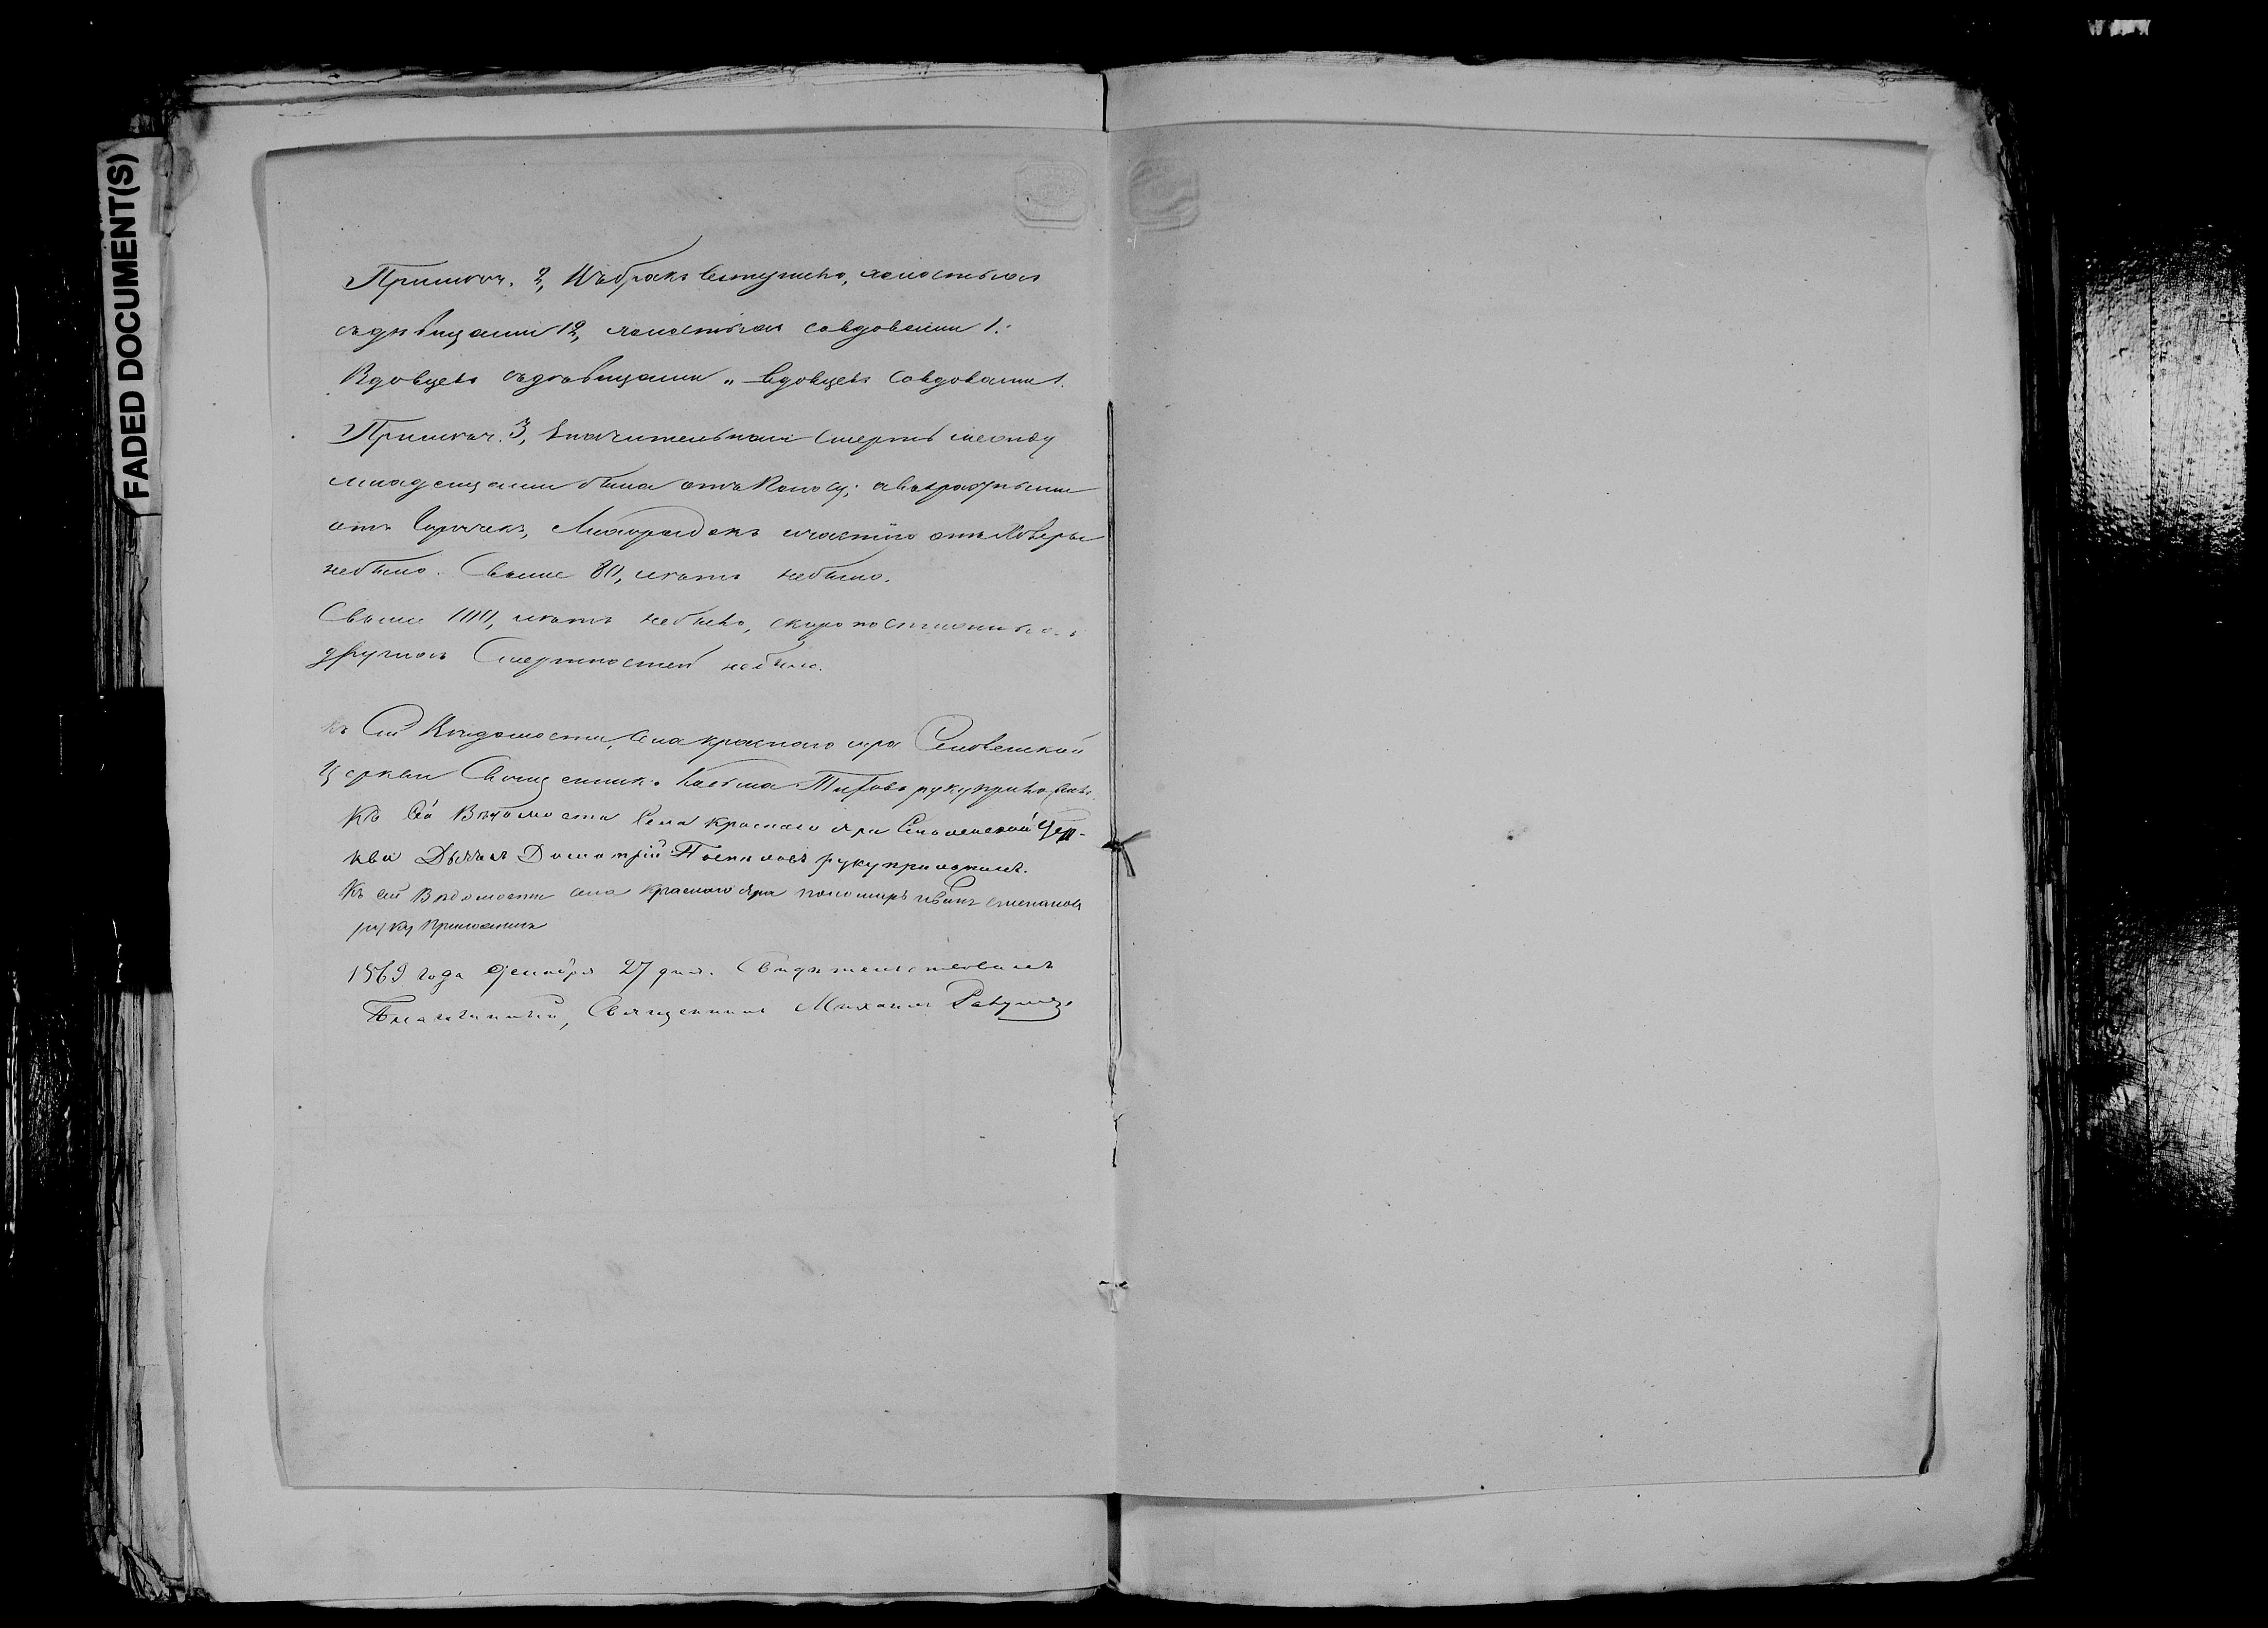 FADED DOCUMENT(S)
Примѣч. 2, Въ бракъ вступило, холостыхъ
съ дѣвицами 12, холостыхъ со вдовами 1.
Вдовцевъ съ дѣвицами „ вдовцевъ со вдовами 1.
Примѣч. 3, значительная смерть между
младенцами была отъ поносу; а возрастными
отъ горячекъ,
небыло. Свыше 80, лѣтъ небыло.
Свыше 100, лѣтъ небыло, скоропостижныхъ
другихъ Смертностей небыло.
къ Сей Вѣдомости, Села Краснаго яра Смоленской
Церкви Священникъ Косьма Титовъ руку приложилъ.
Къ Сей Вѣдомости Села Краснаго яра Смоленской Цер-
кви Дьячекъ Димитрій Поспѣловъ руку приложилъ.
Къ сей Вѣдомости села Краснаго яра пономарь Иванъ Степановъ
руку приложилъ
1869 года Декабря 27 дня. Свидѣтельствовалъ
Благочинный, Священникъ Михаилъ